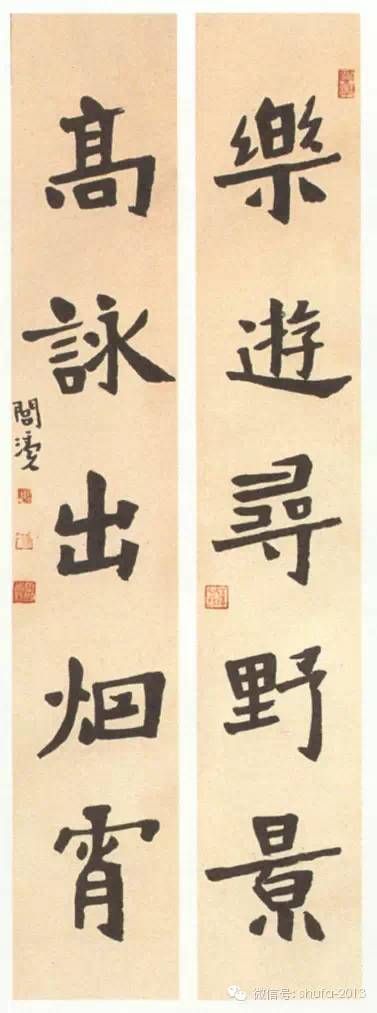 樂遊尋野景
高詠出烟霄
微信号: shufa-2013